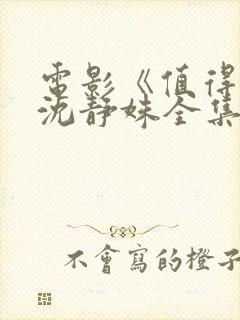 電影《值得
沈靜姝全集
不會寫的橙子